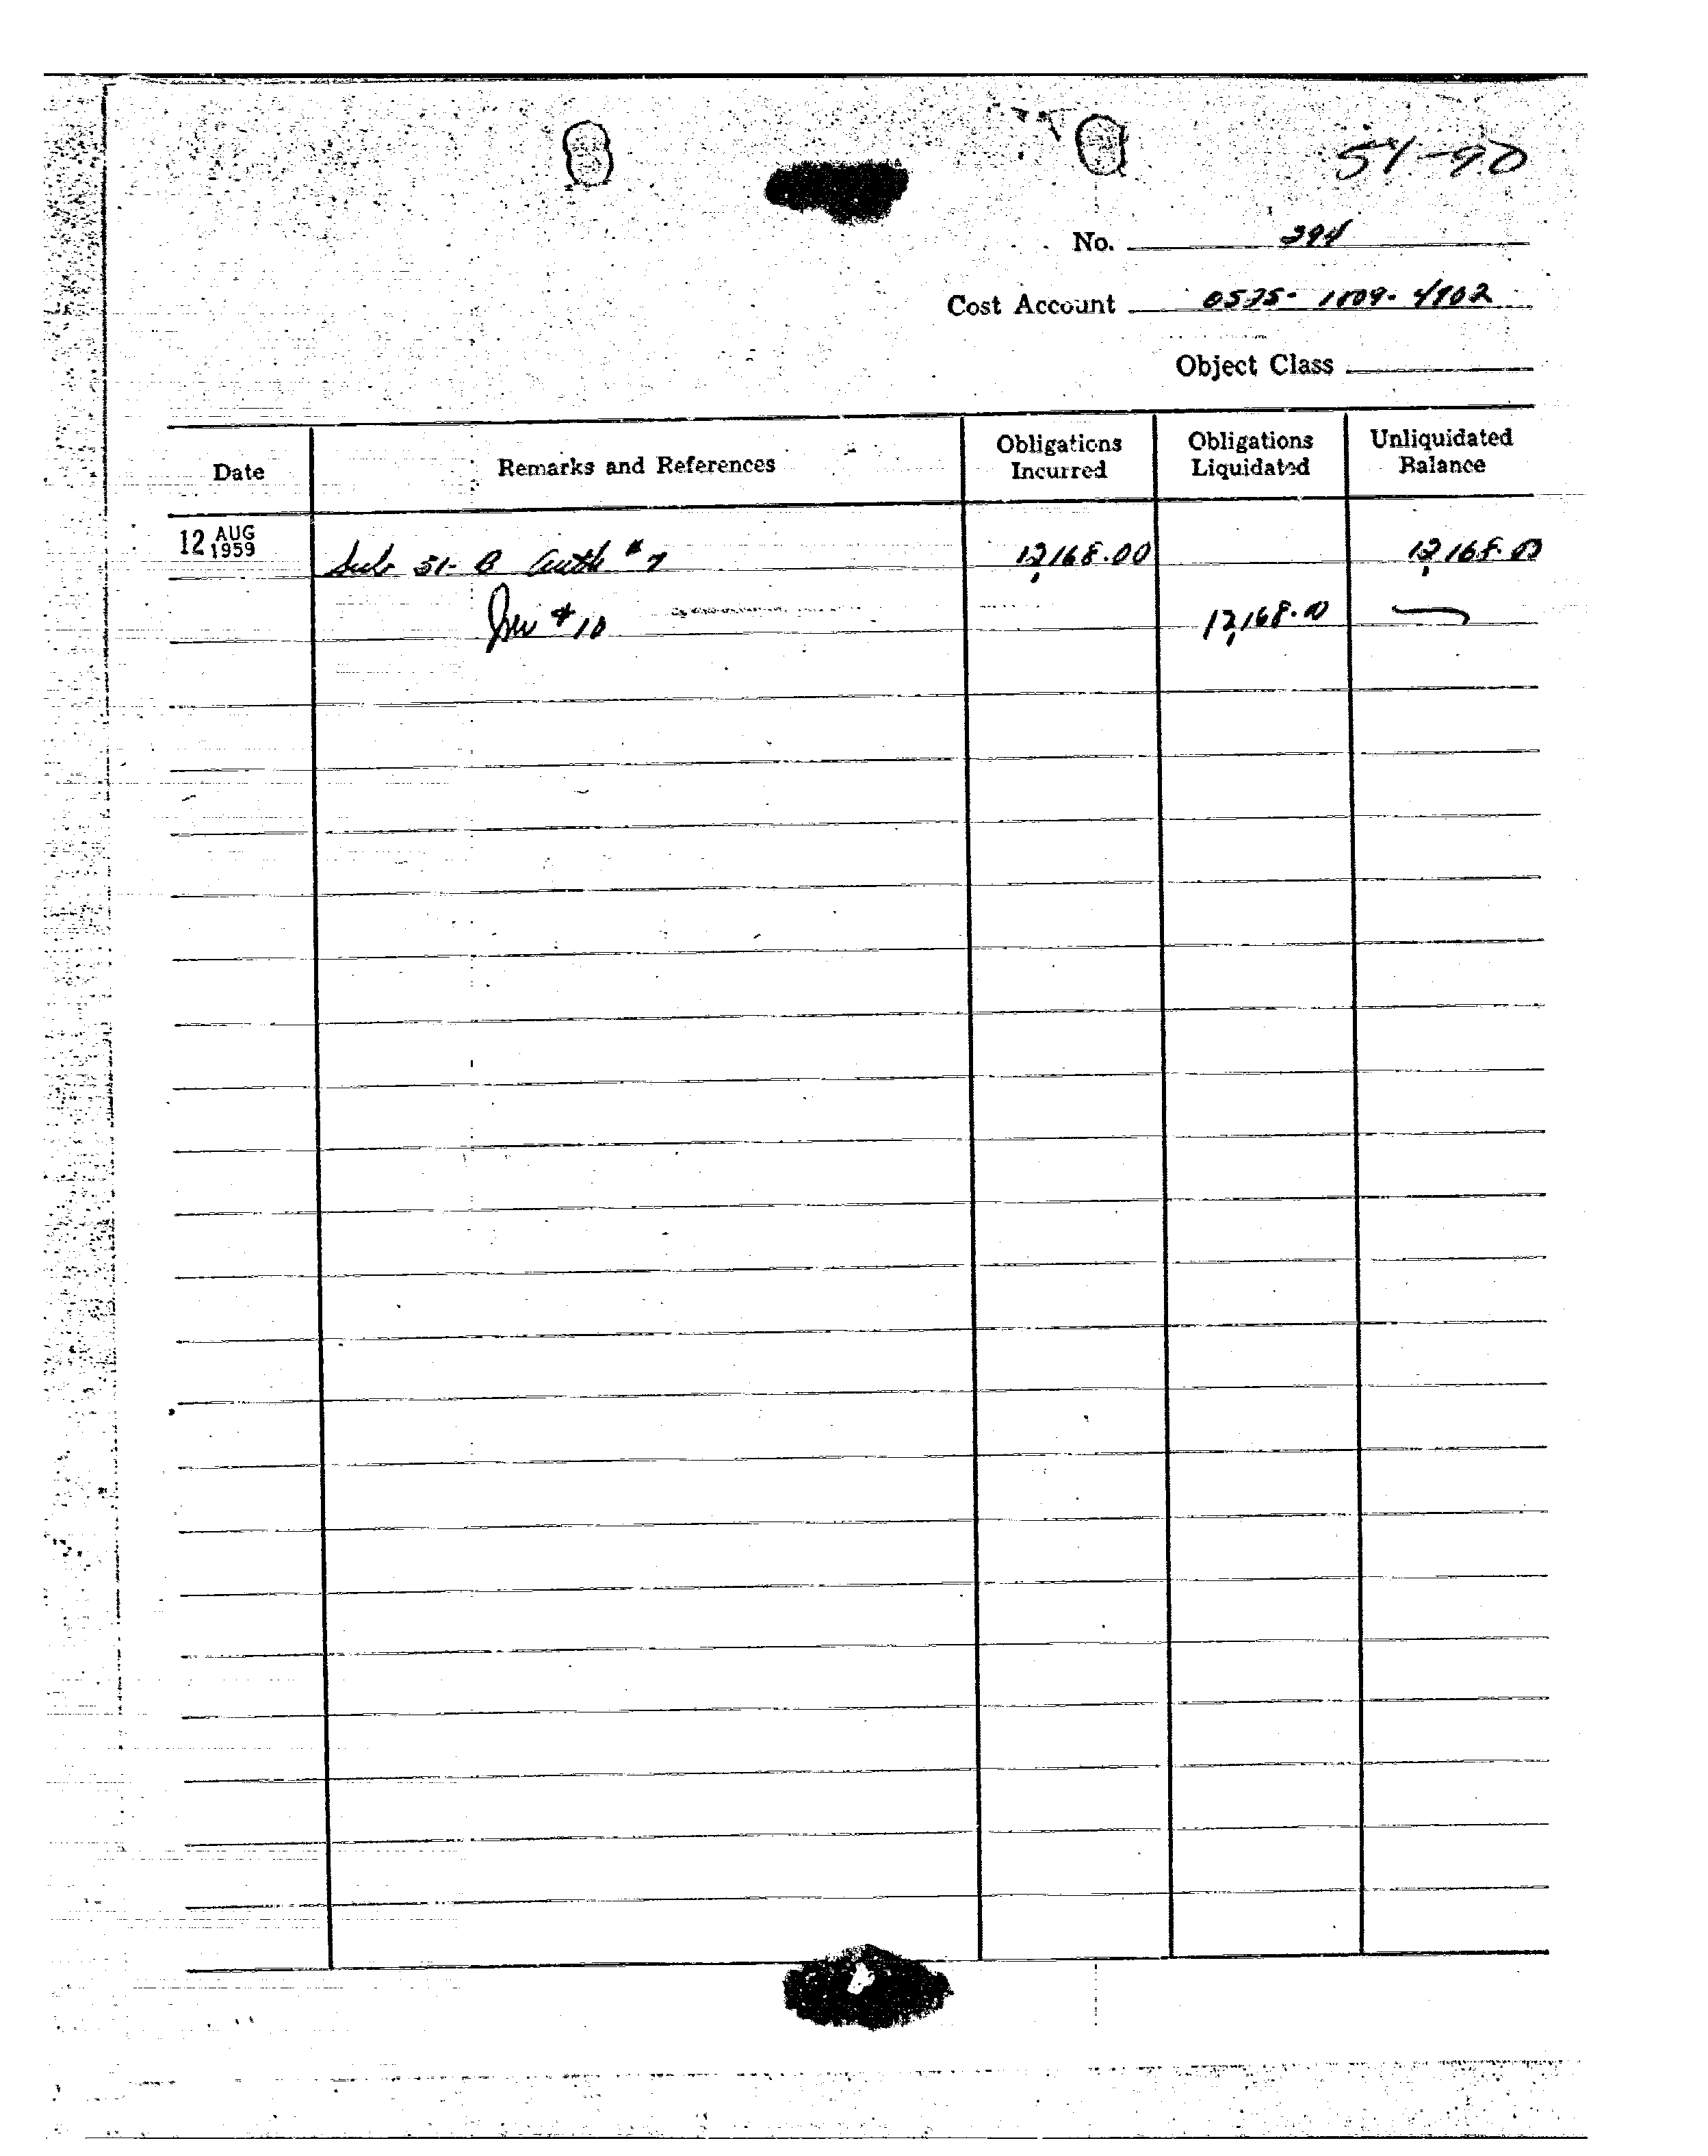 51-90
No. 294
Cost Account
Object Class
Date Remarks and References Obligations Incurred Obligations Liquidated Unliquidated Balance
12 AUG 1959 Sub 51-B Auth #7 12,168.00 12,168.00
Inv #10 12,168.00 —